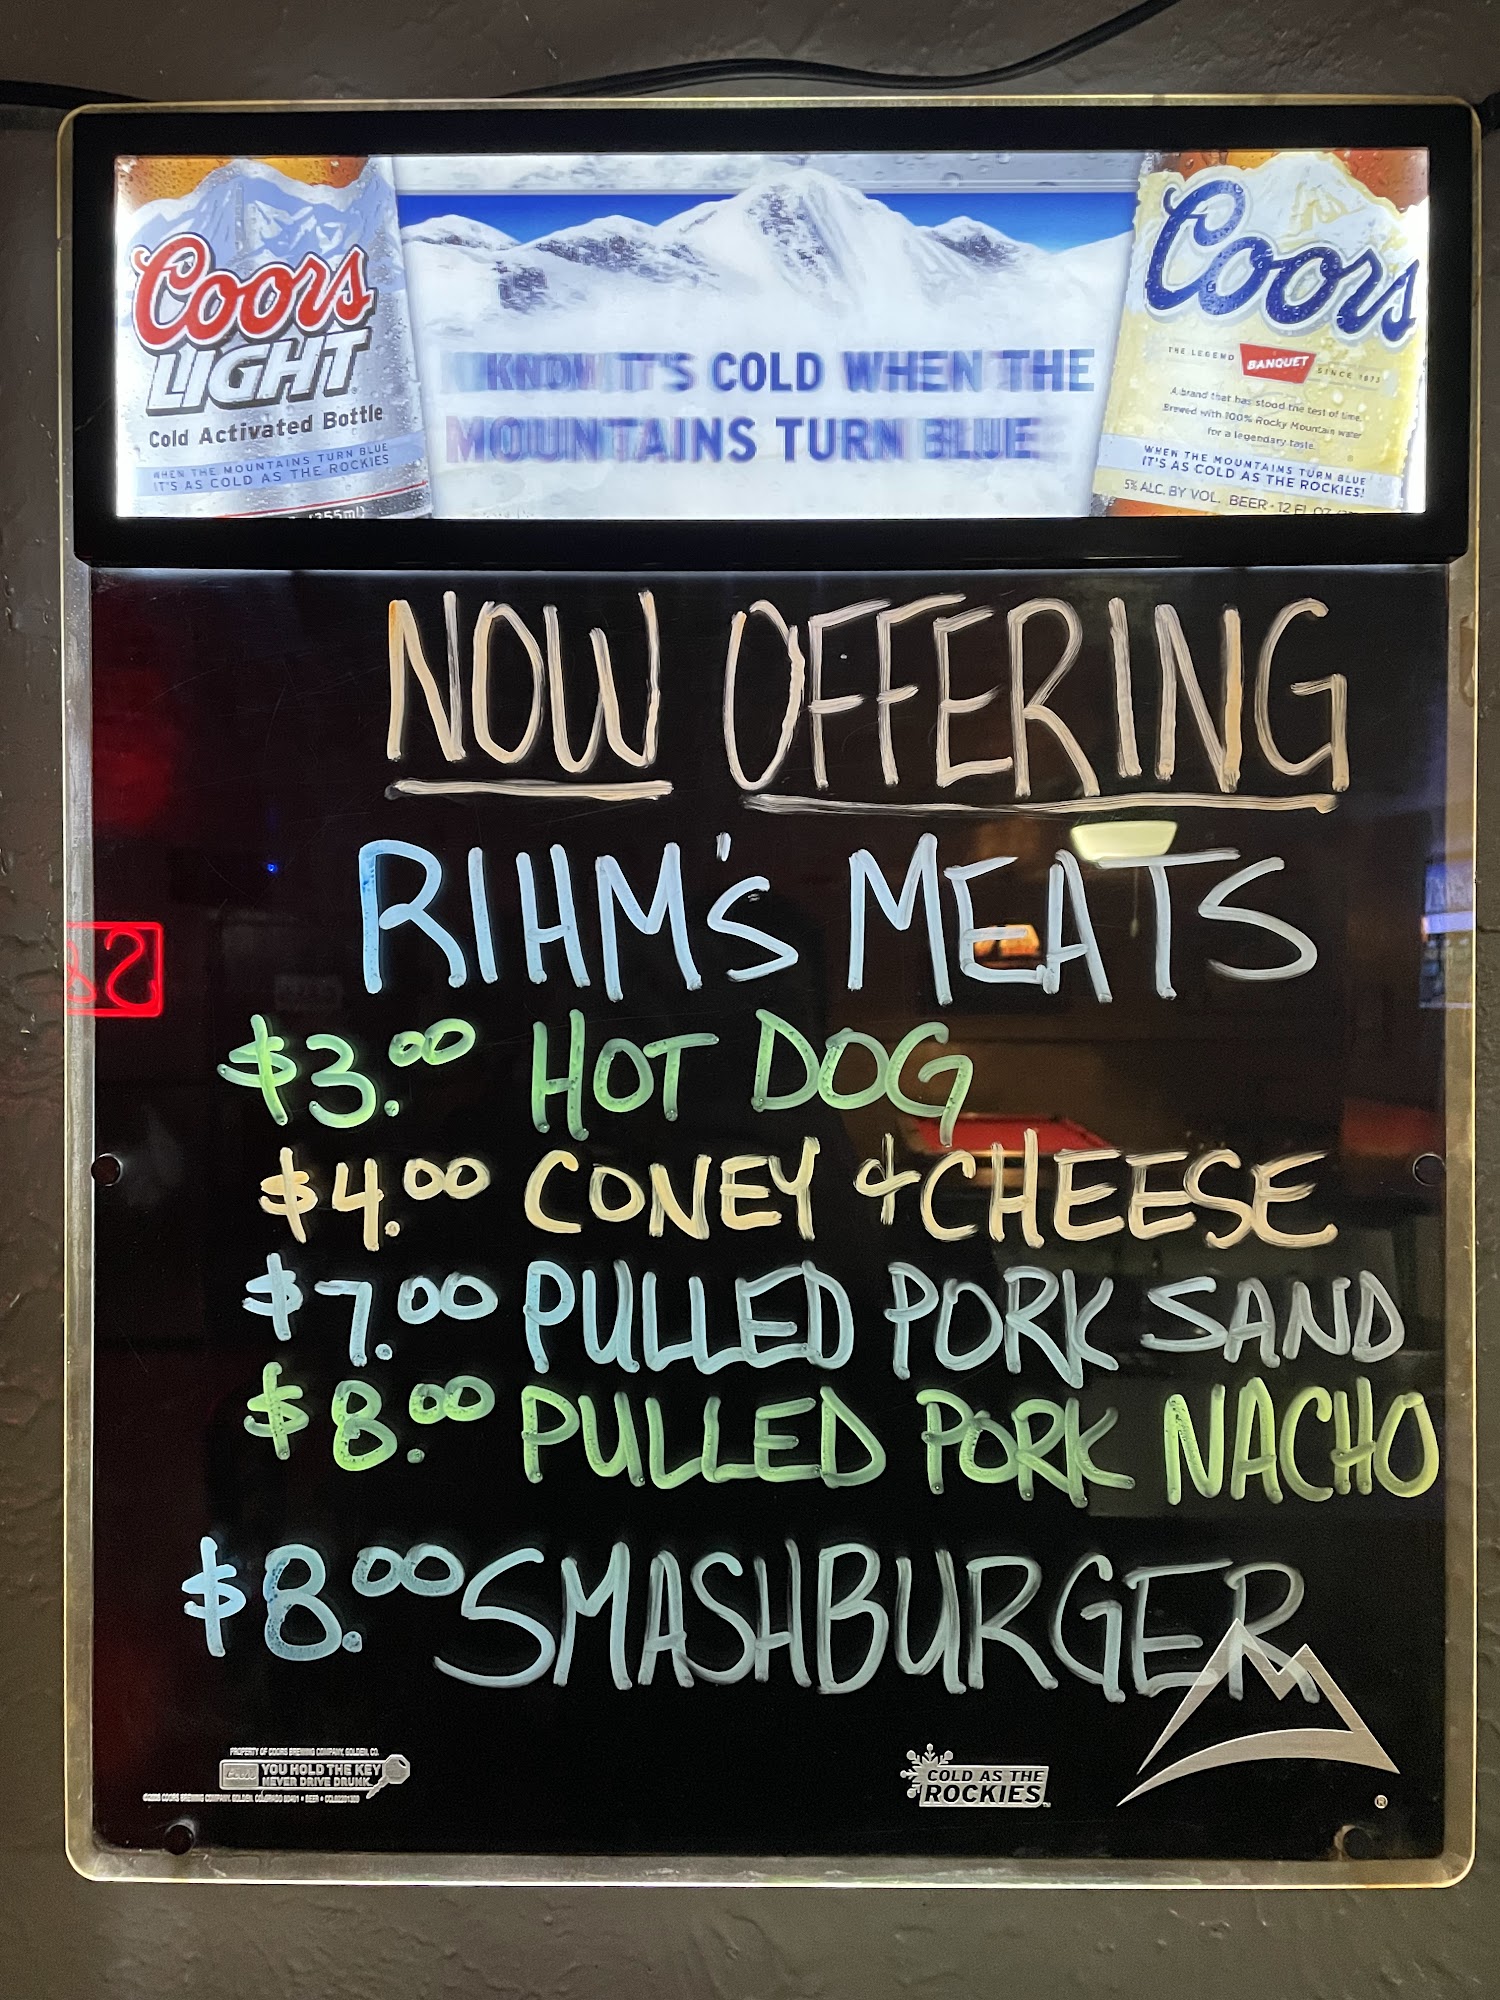 Coors
LIGHT
Cold Activated Bottle
WHEN THE MOUNTAINS TURN BLUE
IT'S AS COLD AS THE ROCKIES
(355ml)
KNOW IT'S COLD WHEN THE
MOUNTAINS TURN BLUE
Coors
THE LEGEND BANQUET SINCE 1873
A brand that has stood the test of time.
Brewed with 100% Rocky Mountain water
for a legendary taste.
WHEN THE MOUNTAINS TURN BLUE
IT'S AS COLD AS THE ROCKIES!
5% ALC. BY VOL. BEER • 12 FL OZ
NOW OFFERING
RIHM'S MEATS
$3.00 HOT DOG
$4.00 CONEY & CHEESE
$7.00 PULLED PORK SAND
$8.00 PULLED PORK NACHO
$8.00 SMASHBURGER
PROPERTY OF COORS BREWING COMPANY, GOLDEN, CO.
Coors YOU HOLD THE KEY
NEVER DRIVE DRUNK.
COORS BREWING COMPANY, GOLDEN, COLORADO 80401 • BEER •
COLD AS THE
ROCKIES